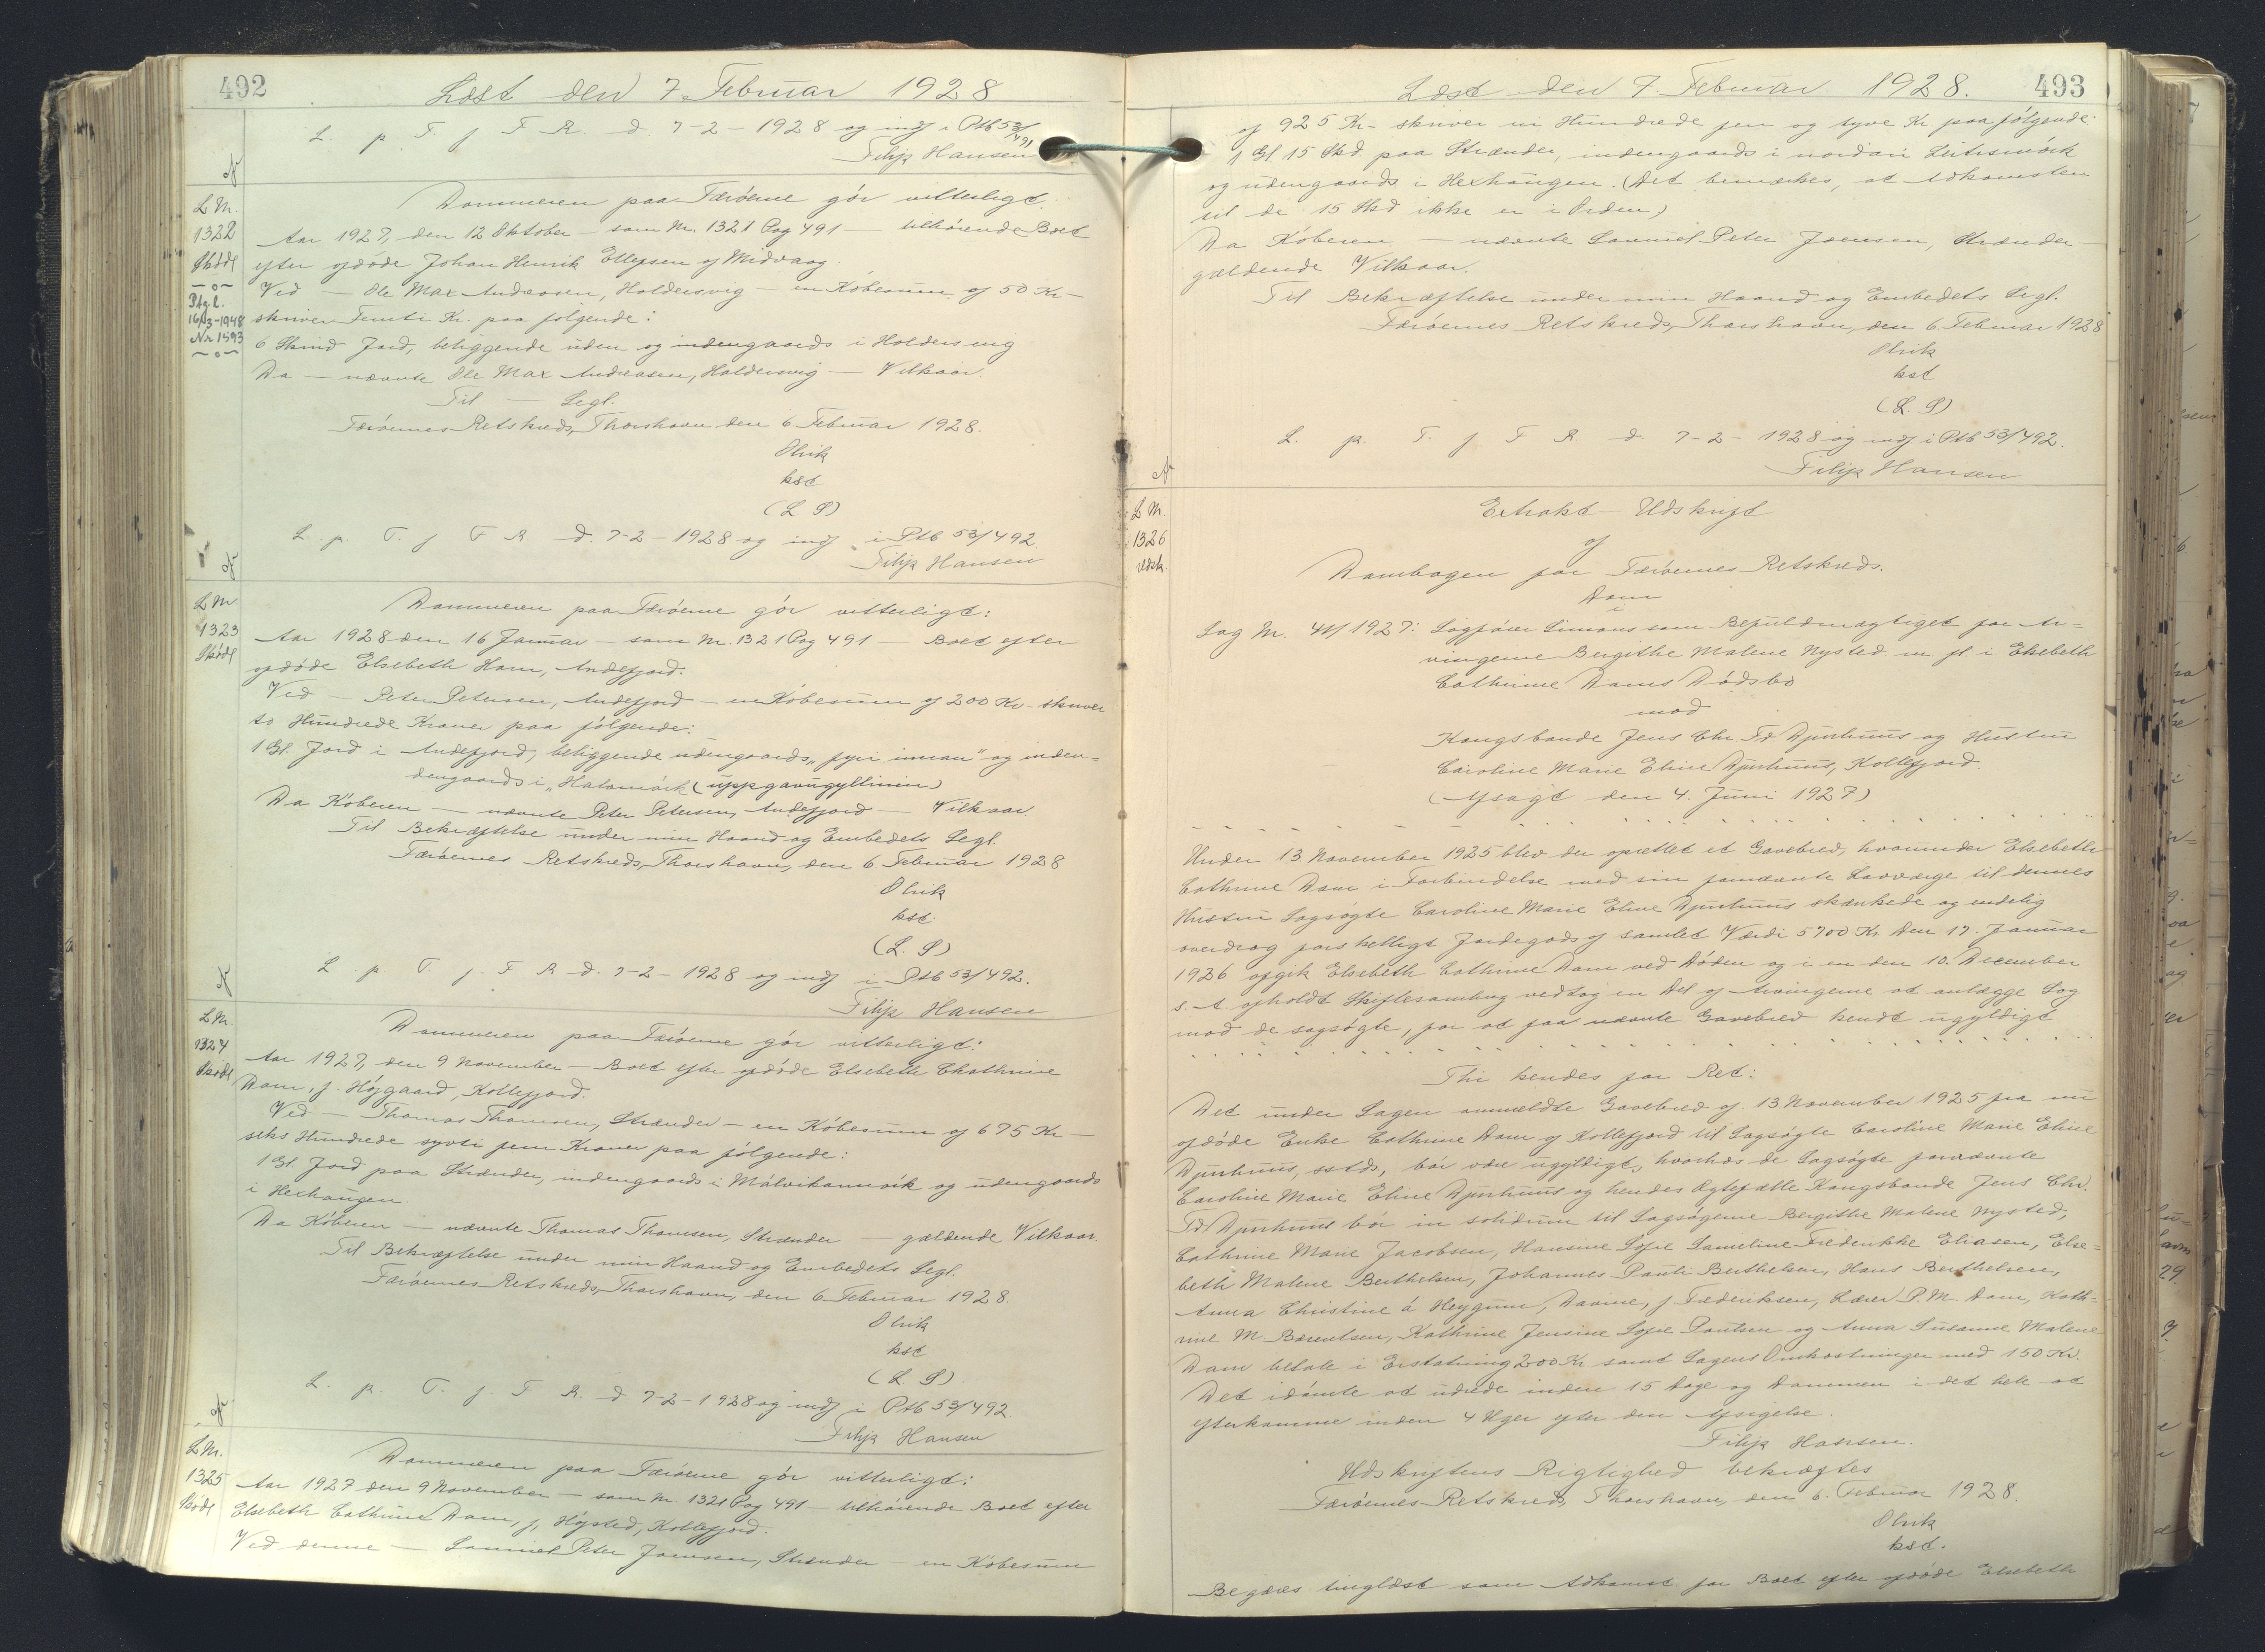 492
Læst den 7. Februar 1928
L. p. T. f F R. d. 7-2-1928 og indf i Ptb 53/491
Filip Hansen
L Nr.
1322
Skøde
Ptgl.
16/3-1948
Nr 1593
Dommeren paa Færøerne gør vitterligt:
Aar 1927, den 12 Oktober – som Nr. 1321 Pag 491 – tilhørende Boet
efter afdøde Johan Henrik Ellefsen af Midvaag.
Ved – Ole Max Andreasen, Haldersvig – en Købesum af 50 Kr –
skriver Femti Kr. paa følgende:
6 Skind Jord, beliggende uden og indengaards i Haldersvig
Da – nævnte Ole Max Andreasen, Haldersvig – Vilkaar.
Til – Segl.
Færøernes Retskreds, Thorshavn den 6 Februar 1928.
Olrik
kst
(L S)
L. p. T. f F R d. 7-2-1928 og indf i Ptb 53/492
Filip Hansen
L Nr
1323
Skøde
Dommeren paa Færøerne gør vitterligt:
Aar 1928 den 16 Januar – som Nr. 1321 Pag 491 – Boet efter
afdøde Elsebeth Ham, Andefjord.
Ved – Peter Petersen, Andefjord – en Købesum af 200 Kr – skriver
to Hundrede Kroner paa følgende:
1 Gl. Jord i Andefjord, beliggende udengaards „fyri innan" og inden=
dengaards i „Hatamørk (uppgavugyllinin)
Da Køberen – nævnte Peter Petersen, Andefjord – Vilkaar
Til Bekræftelse under min Haand og Embedets Segl.
Færøernes Retskreds, Thorshavn, den 6 Februar 1928
Olrik
kst.
(L. S)
L p. T. f. F R d. 7-2-1928 og indf i Ptb 53/492.
Filip Hansen
L Nr
1324
Skøde
Dommeren paa Færøerne gør vitterligt:
Aar 1927, den 9 November – Boet efter afdøde Elsebeth Chathrine
Dam, f. Højgaard, Kollefjord.
Ved – Thomas Thomsen, Strænder – en Købesum af 675 Kr –
seks Hundrede syvti fem Kroner paa følgende:
1 Gl. Jord paa Strænder, indengaards i Málvikannsvik og udengaards
i Hexhaugen
Da Køberen – nævnte Thomas Thomsen, Strænder – gældende Vilkaar.
Til Bekræftelse under min Haand og Embedets Segl.
Færøernes Retskreds, Thorshavn, den 6 Februar 1928
Olrik
kst
(L. S)
L. p. T. f. F R. d 7-2-1928 og indf i Ptb 53/492
Filip Hansen
L Nr.
1325
Skøde
Dommeren paa Færøerne gør vitterligt:
Aar 1927 den 9 November – som Nr. 1321 Pag 491 – tilhørende Boet efter
Elsebeth Cathrine Dam, f. Nysted, Kollefjord.
Ved denne – Samuel Peter Joensen, Strænder – en Købesum
Læst den 7. Februar 1928.
493
af 925 Kr – skriver ni Hundrede fem og tyve Kr paa følgende:
1 Gl 15 Skd. paa Strænder, indengaards i nordari Leitismørk
og udengaards i Hexhaugen. (Det bemærkes, at Adkomsten
til de 15 Skd ikke er i Orden)
Da Køberen – nævnte Samuel Peter Joensen, Strænder –
gældende Vilkaar.
Til Bekræftelse under min Haand og Embedets Segl.
Færøernes Retskreds, Thorshavn, den 6 Februar 1928
Olrik
kst
(L. S)
L. p. T. f F R d 7-2-1928 og indf i Ptb 53/492.
Filip Hansen
L Nr.
1326
Udsk.
Extrakt – Udskrift
af
Dombogen for Færøernes Retskreds.
Dom
i
Sag Nr. 41/1927: Sagfører Simons som Befuldmægtiget for Ar=
vingerne Bergithe Malene Nysted m. fl. i Elsebeth
Cathrine Dams Dødsbo
mod
Kongsbonde Jens Chr. Fr Djurhuus og Hustru
Caroline Marie Eline Djurhuus, Kollefjord.
(afsagt den 4. Juni 1927)
Under 13 November 1925 blev der oprettet et Gavebrev, hvorunder Elsebeth
Cathrine Dam i Forbindelse med sin fornævnte Lavværge til dennes
Hustru Sagsøgte Caroline Marie Eline Djurhuus skænkede og endelig
overdrog forskelligt Jordegods af samlet Værdi 5700 Kr. Den 17. Januar
1926 afgik Elsebeth Cathrine Dam ved Døden og i en den 10. December
s. A. afholdt Skiftesamling vedtog en Del af Arvingerne at anlægge Sag
mod de sagsøgte, for at faa nævnte Gavebrev kendt ugyldigt
Thi kendes for Ret:
Det under Sagen ommeldte Gavebrev af 13. November 1925 fra nu
afdøde Enke Cathrine Dam af Kollefjord til Sagsøgte Caroline Marie Eline
Djurhuus, sstds, bør være ugyldigt, hvorhos de Sagsøgte fornævnte
Caroline Marie Eline Djurhuus og hendes Ægtefælle Kongsbonde Jens Chr.
Fr Djurhuus bør in solidum til Sagsøgerne Bergithe Malene Nysted,
Cathrine Marie Jacobsen, Hansine Sofie Sameline Frederikke Eliasen, Else=
beth Malene Berthelsen, Johannes Pauli Berthelsen, Hans Berthelsen,
Anna Christine á Heygum, Davine, f Frederiksen, Lærer P. M. Dam, Kath=
rine M Barentsen, Kathrine Jensine Sofie Poulsen og Anna Susanne Malene
Dam betale i Erstatning 200 Kr samt Sagens Omkostninger med 150 Kr.
Det idømte at udrede inden 15 Dage og Dommen i det hele at
efterkomme inden 4 Uger efter den Afsigelse.
Filip Hansen.
Udskriftens Rigtighed bekræftes
Færøernes Retskreds, Thorshavn, den 6. Februar 1928.
Olrik
kst.
Begæres tinglæst som Adkomst for Boet efter afdøde Elsebeth